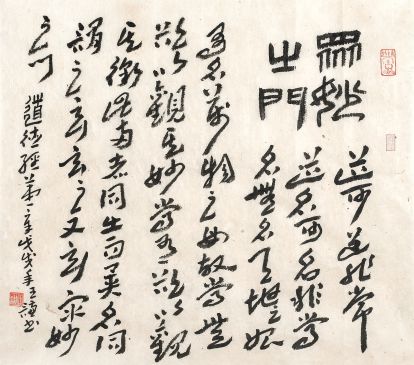 眾妙
之門
道可道非常
道名可名非常
名無名天地之始
有名萬物之母故常無
欲以觀其妙常有欲以觀
其徼此兩者同出而異名同
謂之玄玄之又玄眾妙
之門
道德經第一章戊戌年王书